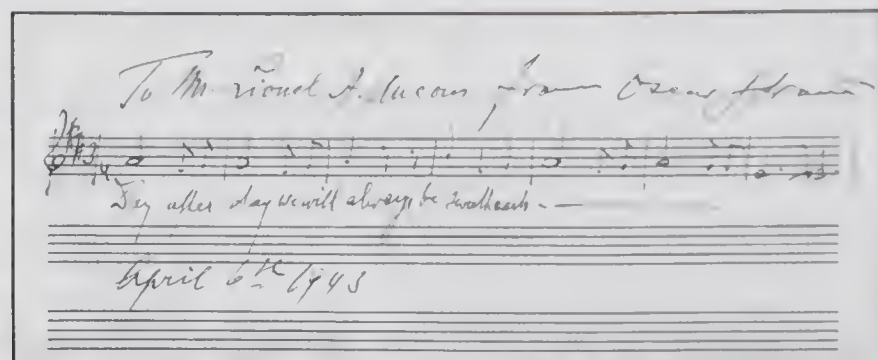 To Mr. Lionel A. Lucas from Oscar Straus
3 4
Day after day we will always be sweethearts - —
April 6th 1943